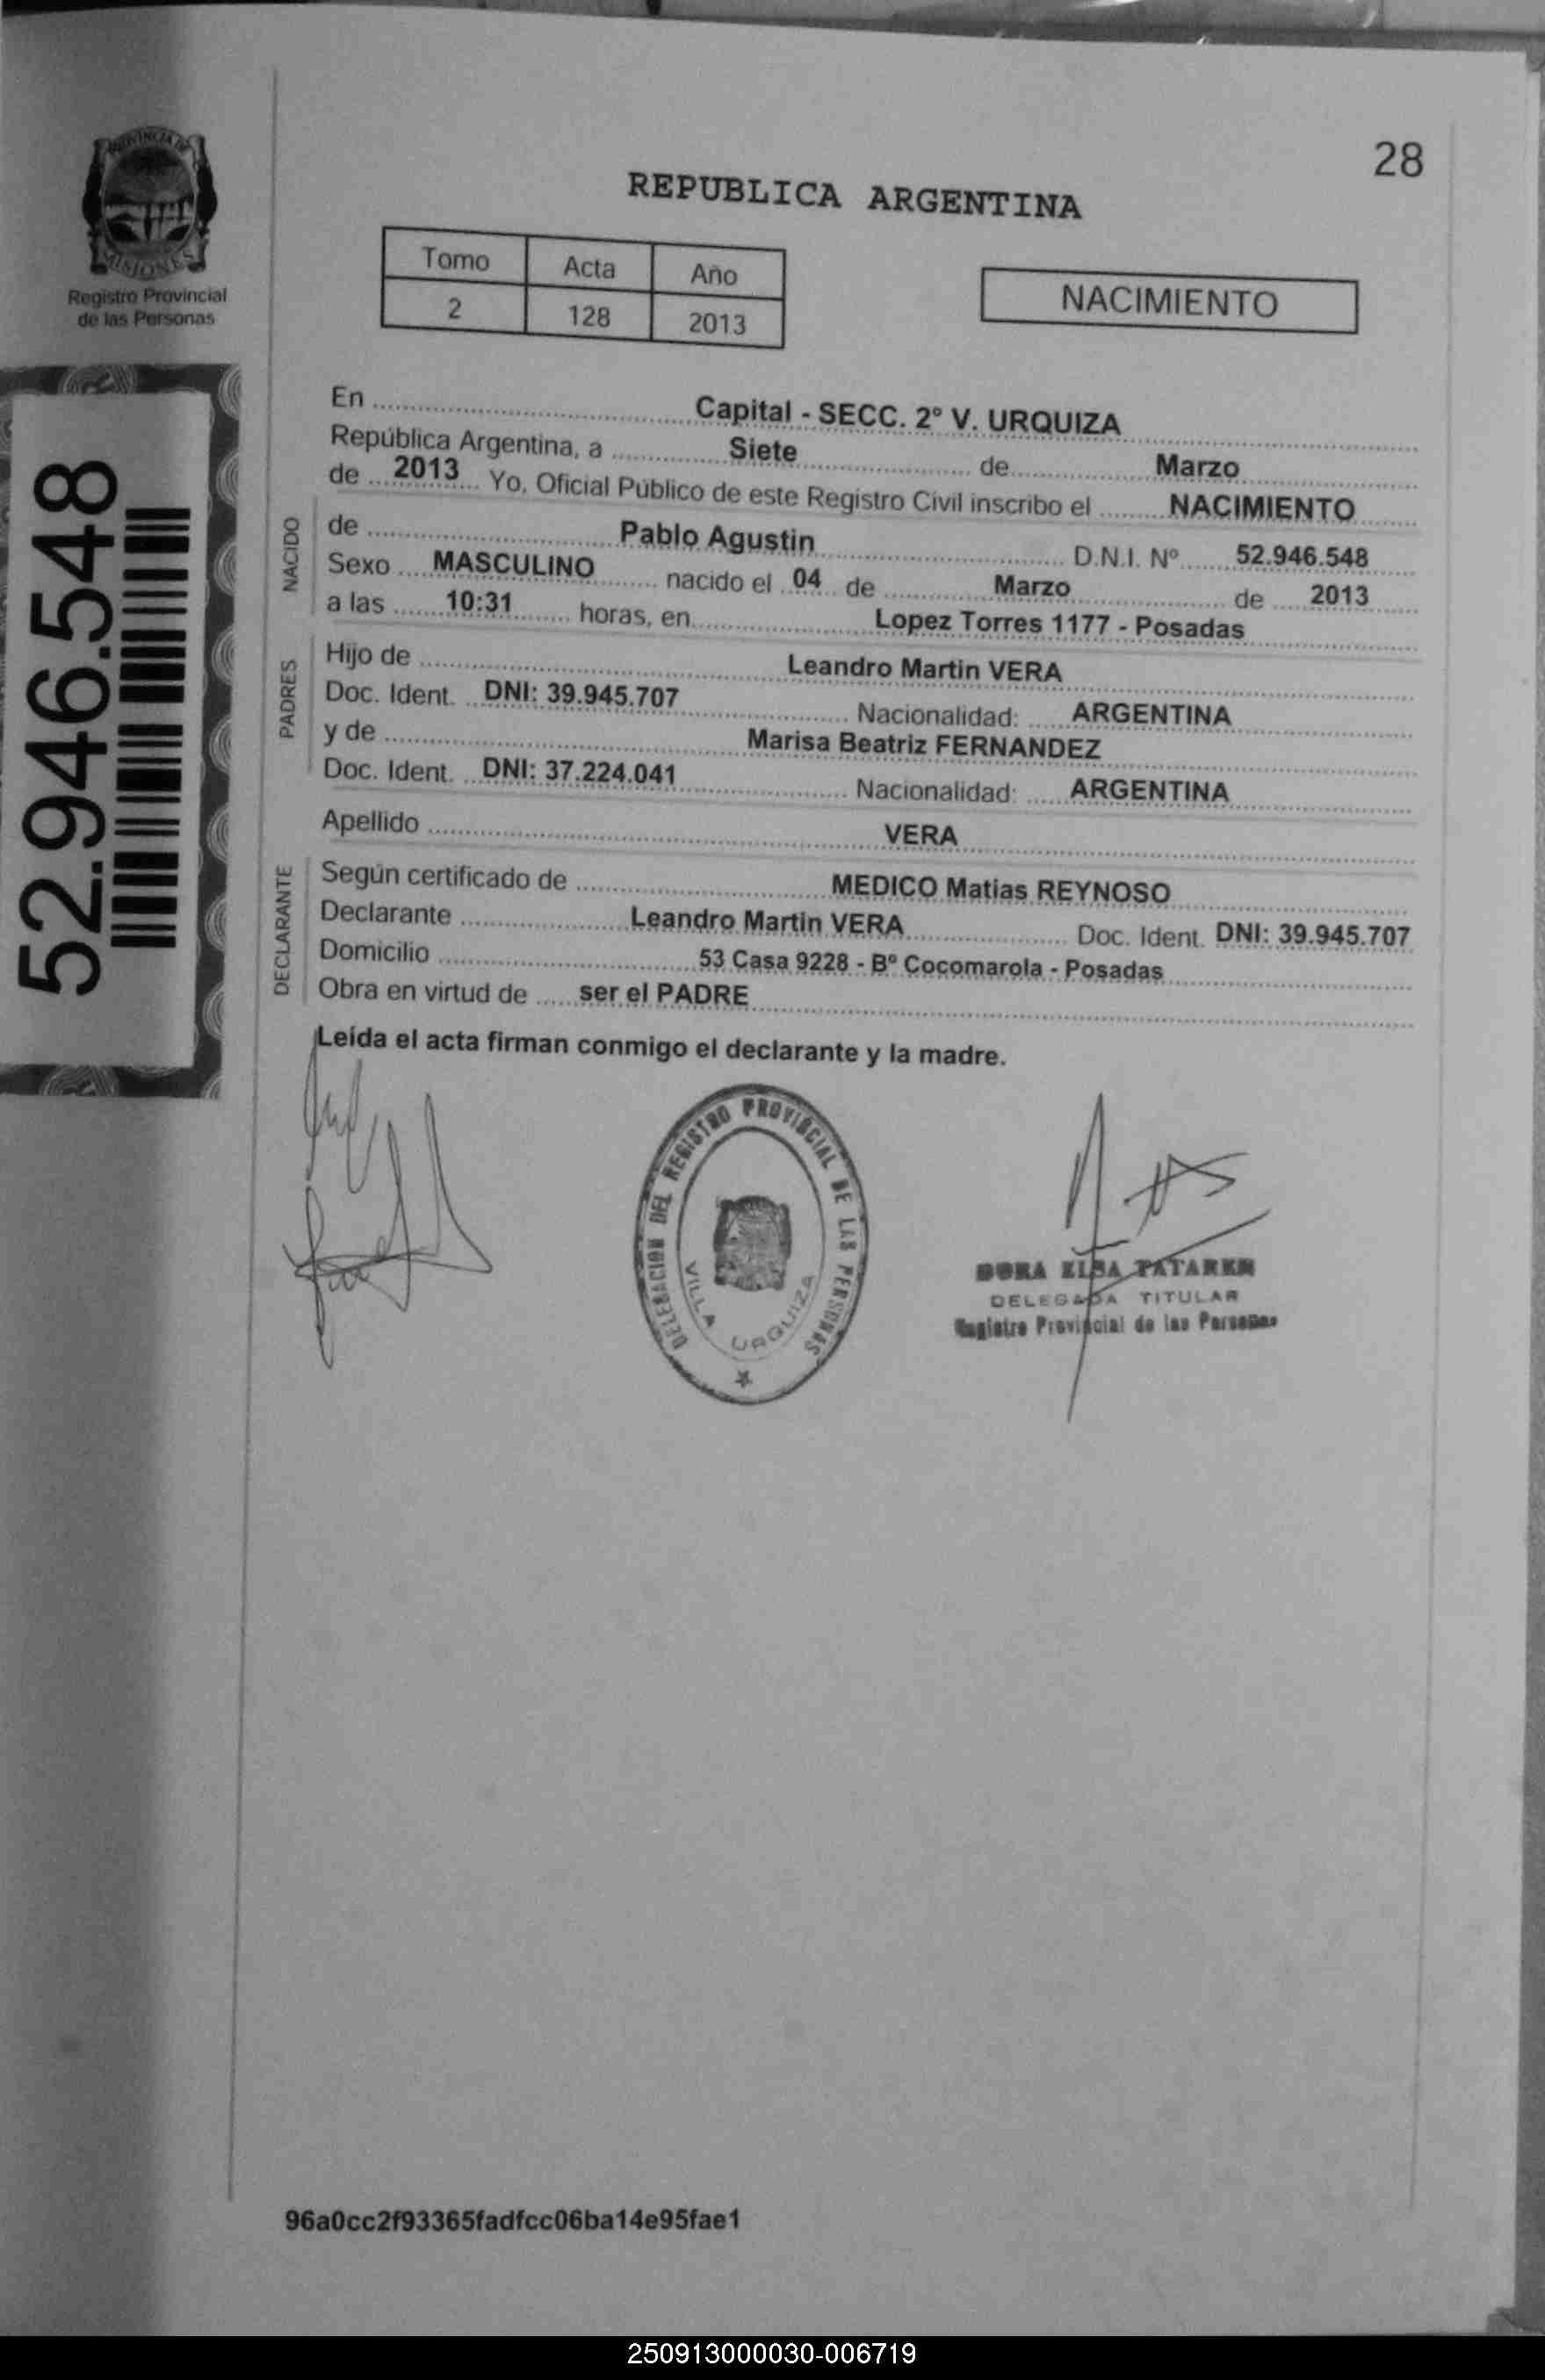 28
REPUBLICA ARGENTINA
PROVINCIA DE
MISIONES
Registro Provincial
de las Personas
Tomo Acta Año
2 128 2013
NACIMIENTO
52.946.548
En Capital - SECC. 2º V. URQUIZA
República Argentina, a Siete de Marzo
de 2013 Yo, Oficial Público de este Registro Civil inscribo el NACIMIENTO
NACIDO
de Pablo Agustin D.N.I. Nº 52.946.548
Sexo MASCULINO nacido el 04 de Marzo de 2013
a las 10:31 horas, en Lopez Torres 1177 - Posadas
PADRES
Hijo de Leandro Martin VERA
Doc. Ident. DNI: 39.945.707 Nacionalidad: ARGENTINA
y de Marisa Beatriz FERNANDEZ
Doc. Ident. DNI: 37.224.041 Nacionalidad: ARGENTINA
Apellido VERA
DECLARANTE
Según certificado de MEDICO Matias REYNOSO
Declarante Leandro Martin VERA Doc. Ident. DNI: 39.945.707
Domicilio 53 Casa 9228 - Bº Cocomarola - Posadas
Obra en virtud de ser el PADRE
Leída el acta firman conmigo el declarante y la madre.
DELEGACION DEL REGISTRO PROVINCIAL DE LAS PERSONAS
VILLA URQUIZA
DORA ELSA
DELEGADA TITULAR
Registro Provincial de las Personas
96a0cc2f93365fadfcc06ba14e95fae1
250913000030-006719